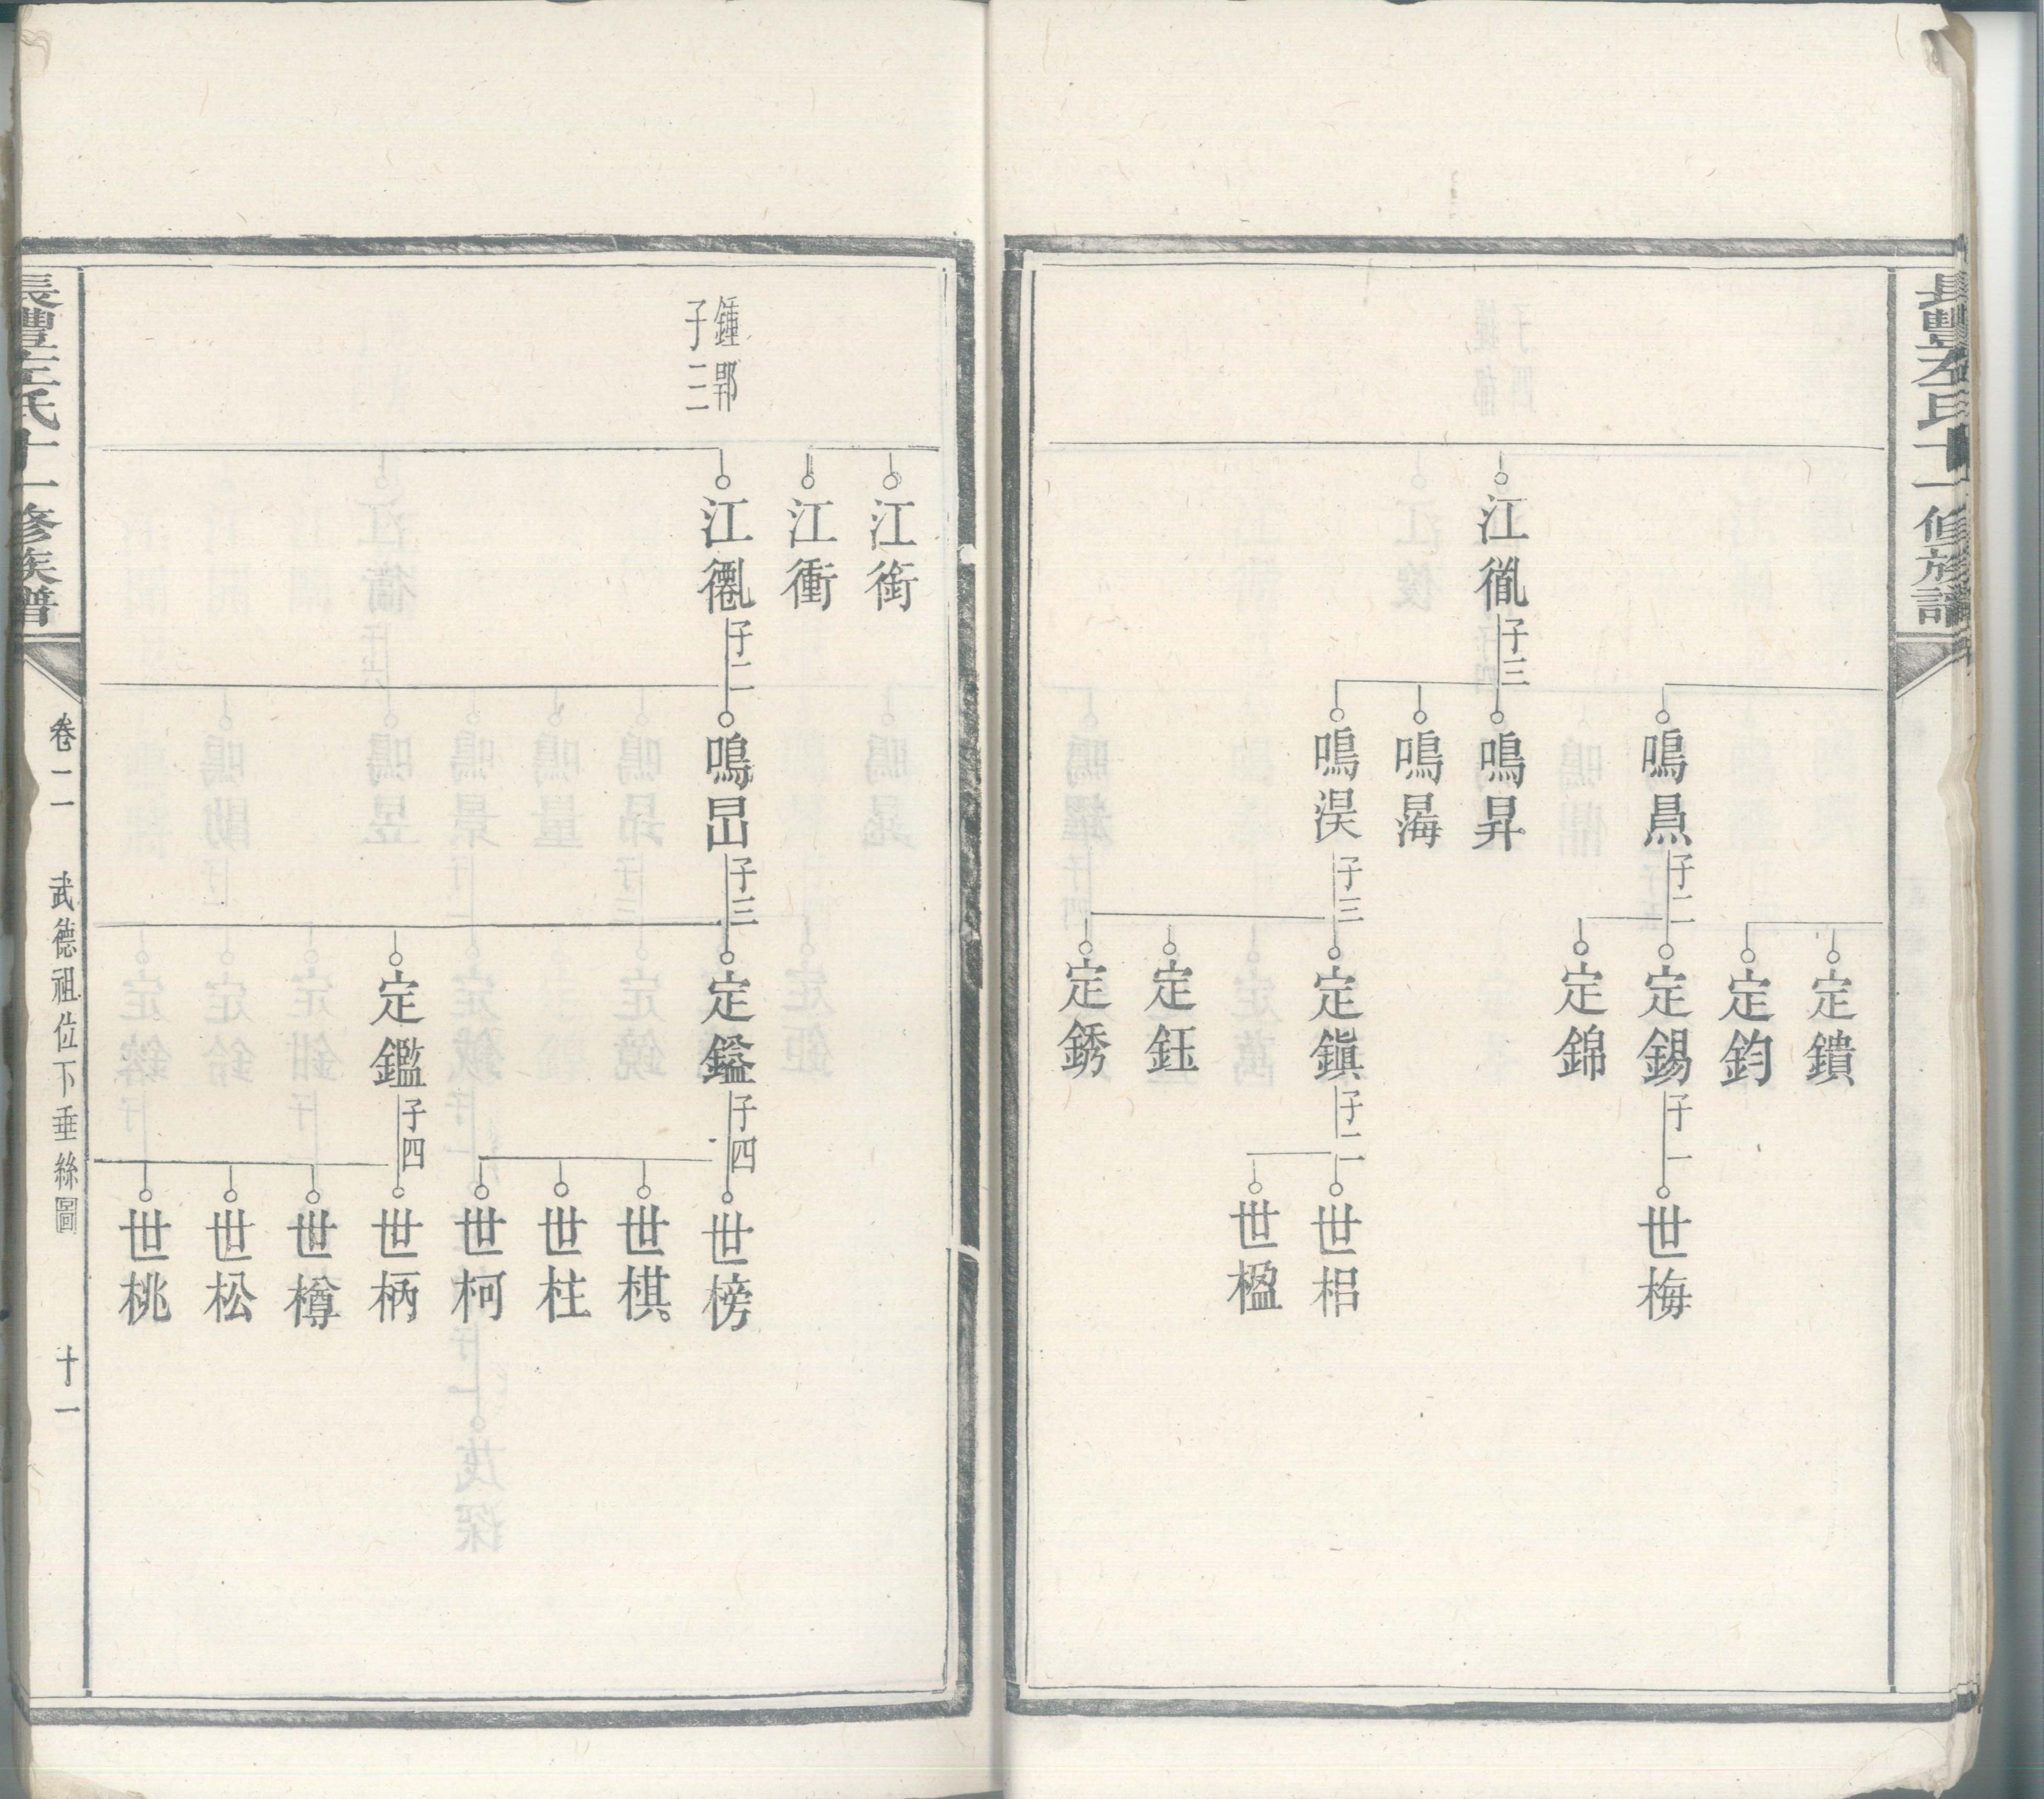 長豐左氏十一修族譜
江
子三
鳴
子二
鳴昇
鳴
鳴淏
子三
定鐀
定鈞
定錫
子一
定錦
定鎭
子二
定鈺
定銹
世梅
世梠
世楹
鍾鄂
子三
江銜
江衝
江
子二
鳴
子三
定鎰
子四
定鑑
子四
世榜
世棋
世柱
世柯
世柄
世樽
世松
世桃
長豐左氏十一修族譜
卷二
武德祖位下垂絲圖
十一